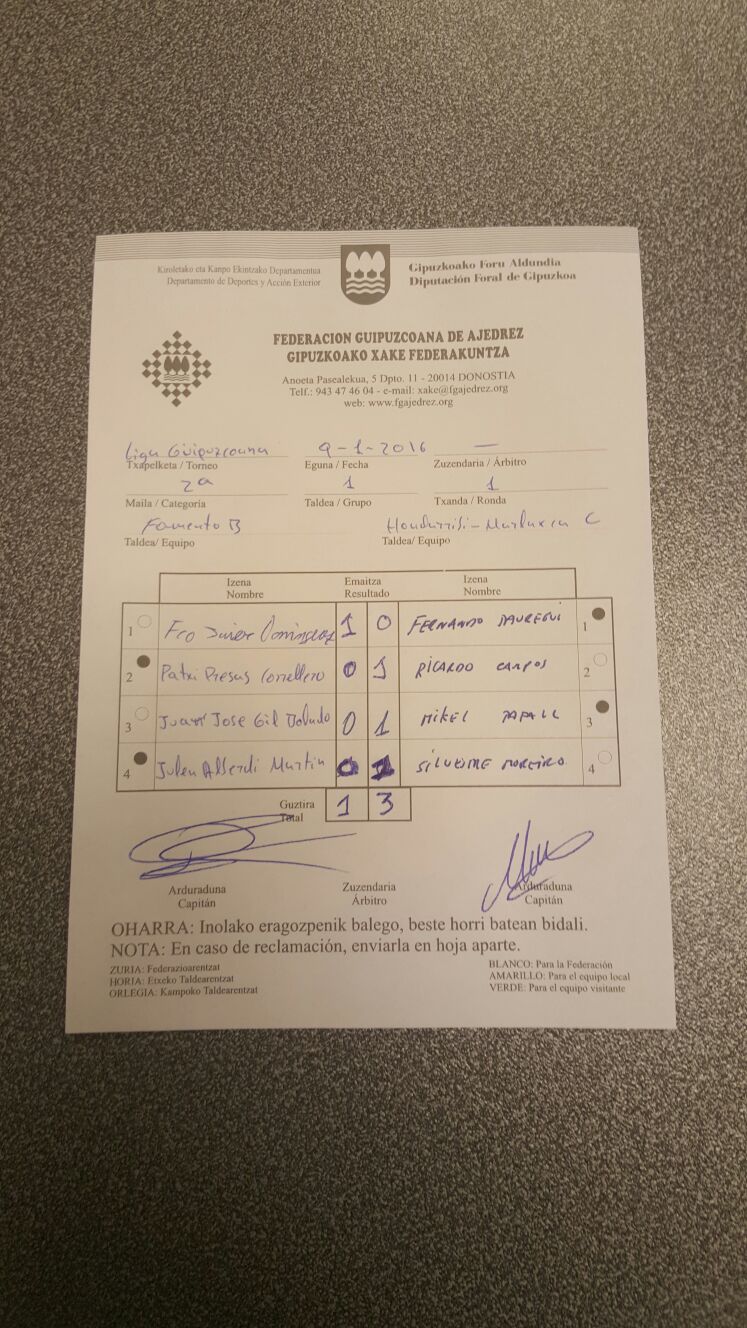 Kiroletako eta Kanpo Ekintzako Departamentua
Departamento de Deportes y Acción Exterior
Gipuzkoako Foru Aldundia
Diputación Foral de Gipuzkoa
FEDERACION GUIPUZCOANA DE AJEDREZ
GIPUZKOAKO XAKE FEDERAKUNTZA
Anoeta Pasealekua, 5 Dpto. 11 - 20014 DONOSTIA
Telf.: 943 47 46 04 - e-mail: xake@fgajedrez.org
web: www.fgajedrez.org
Liga Guipuzcoana 9-1-2016 —
Txapelketa / Torneo Eguna / Fecha Zuzendaria / Árbitro
2ª 1 1
Maila / Categoría Taldea / Grupo Txanda / Ronda
Fomento B C
Taldea/ Equipo Taldea/ Equipo
Izena Emaitza Izena
Nombre Resultado Nombre
1 Fco Javier Dominguez 1 0 FERNANDO JAUREGUI 1
2 Patxi Presas 0 1 RICARDO CAMPOS 2
3 Juan Jose Gil 0 1 MIKEL 3
4 Julen Alberdi Martin 0 1 SILVESTRE MOREIRO 4
Guztira 1 3
Total
Arduraduna Zuzendaria Arduraduna
Capitán Árbitro Capitán
OHARRA: Inolako eragozpenik balego, beste horri batean bidali.
NOTA: En caso de reclamación, enviarla en hoja aparte.
ZURIA: Federazioarentzat
HORIA: Etxeko Taldearentzat
ORLEGIA: Kampoko Taldearentzat
BLANCO: Para la Federación
AMARILLO: Para el equipo local
VERDE: Para el equipo visitante